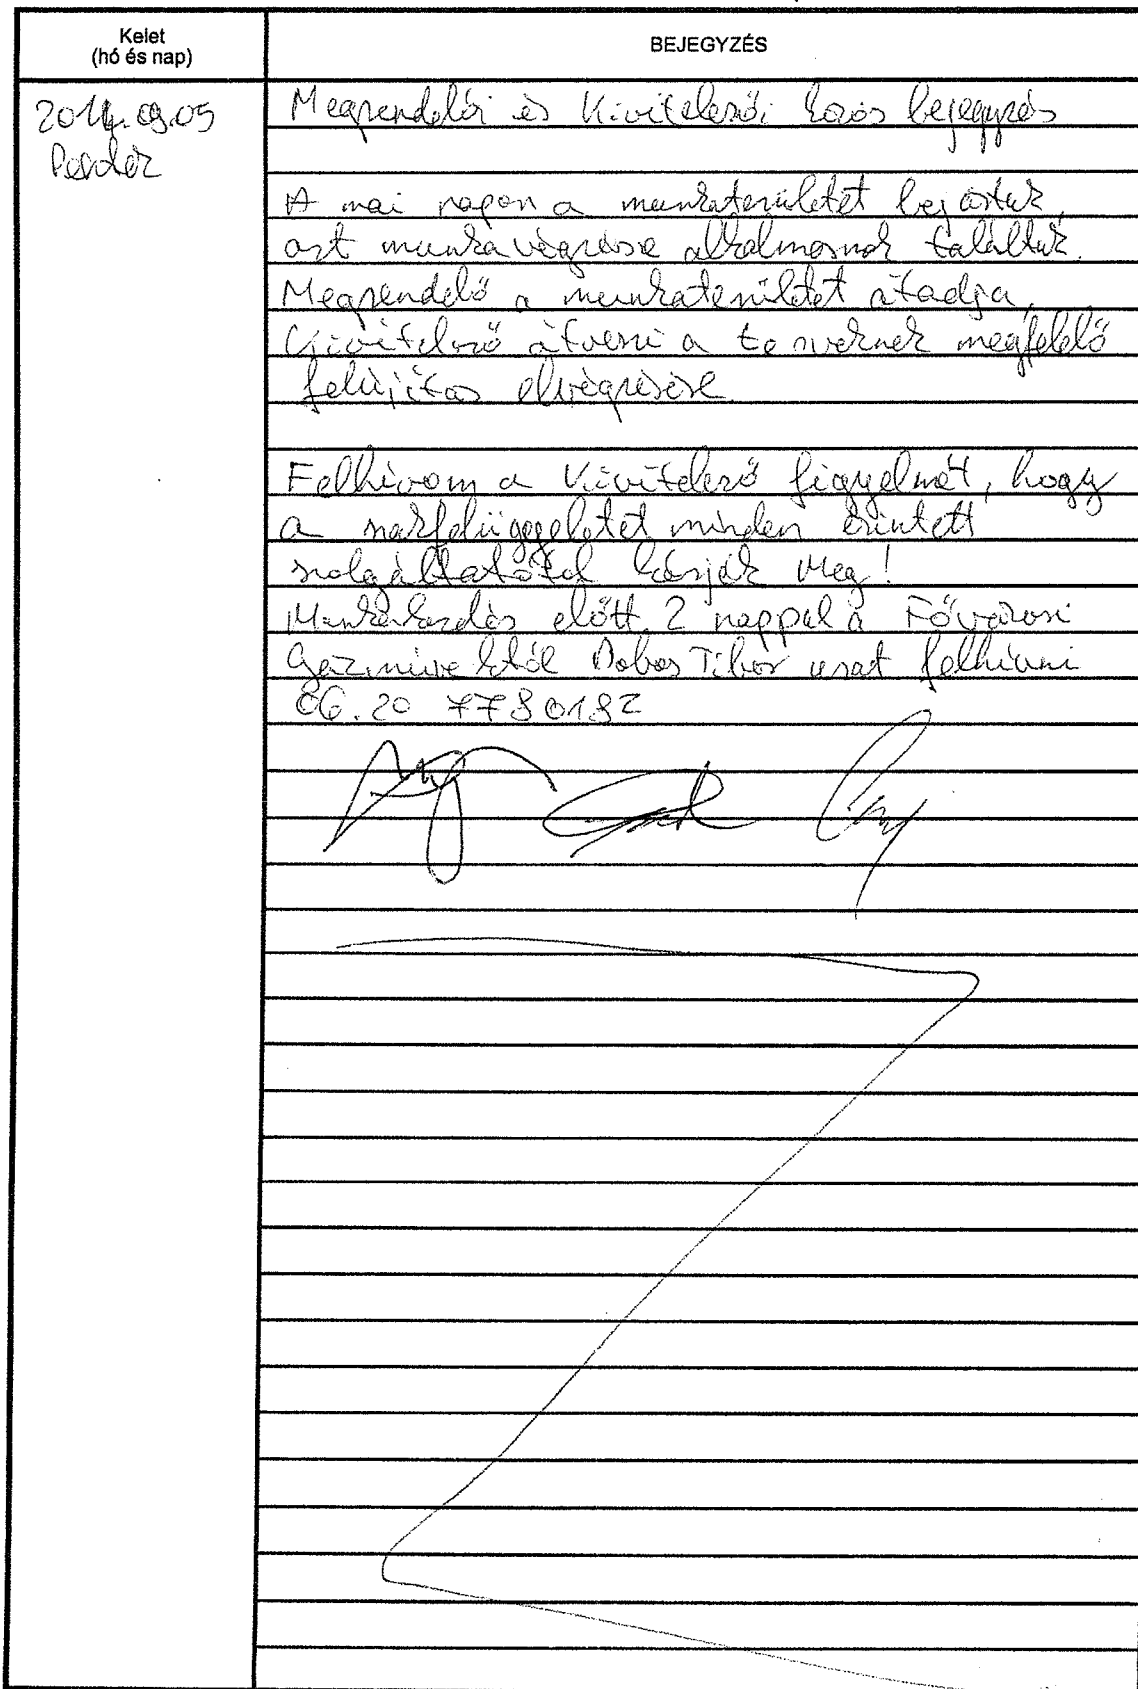 Kelet
(hó és nap)
BEJEGYZÉS
2014.09.05
Péntek
Megrendelői és Kivitelezői közös bejegyzés
A mai napon a munkaterületet bejártuk,
azt munkavégzésre alkalmasnak találtuk.
Megrendelő a munkaterületet átadja,
Kivitelező átveszi a terveknek megfelelő
felújítás elvégzésére.
Felhívom a Kivitelező figyelmét, hogy
a szakfelügyeletet minden érintett
szolgáltatótól kérjék meg!
Munkakezdés előtt 2 nappal a Fővárosi
Gázművektől Dobos Tibor urat felhívni
06.20 7780182